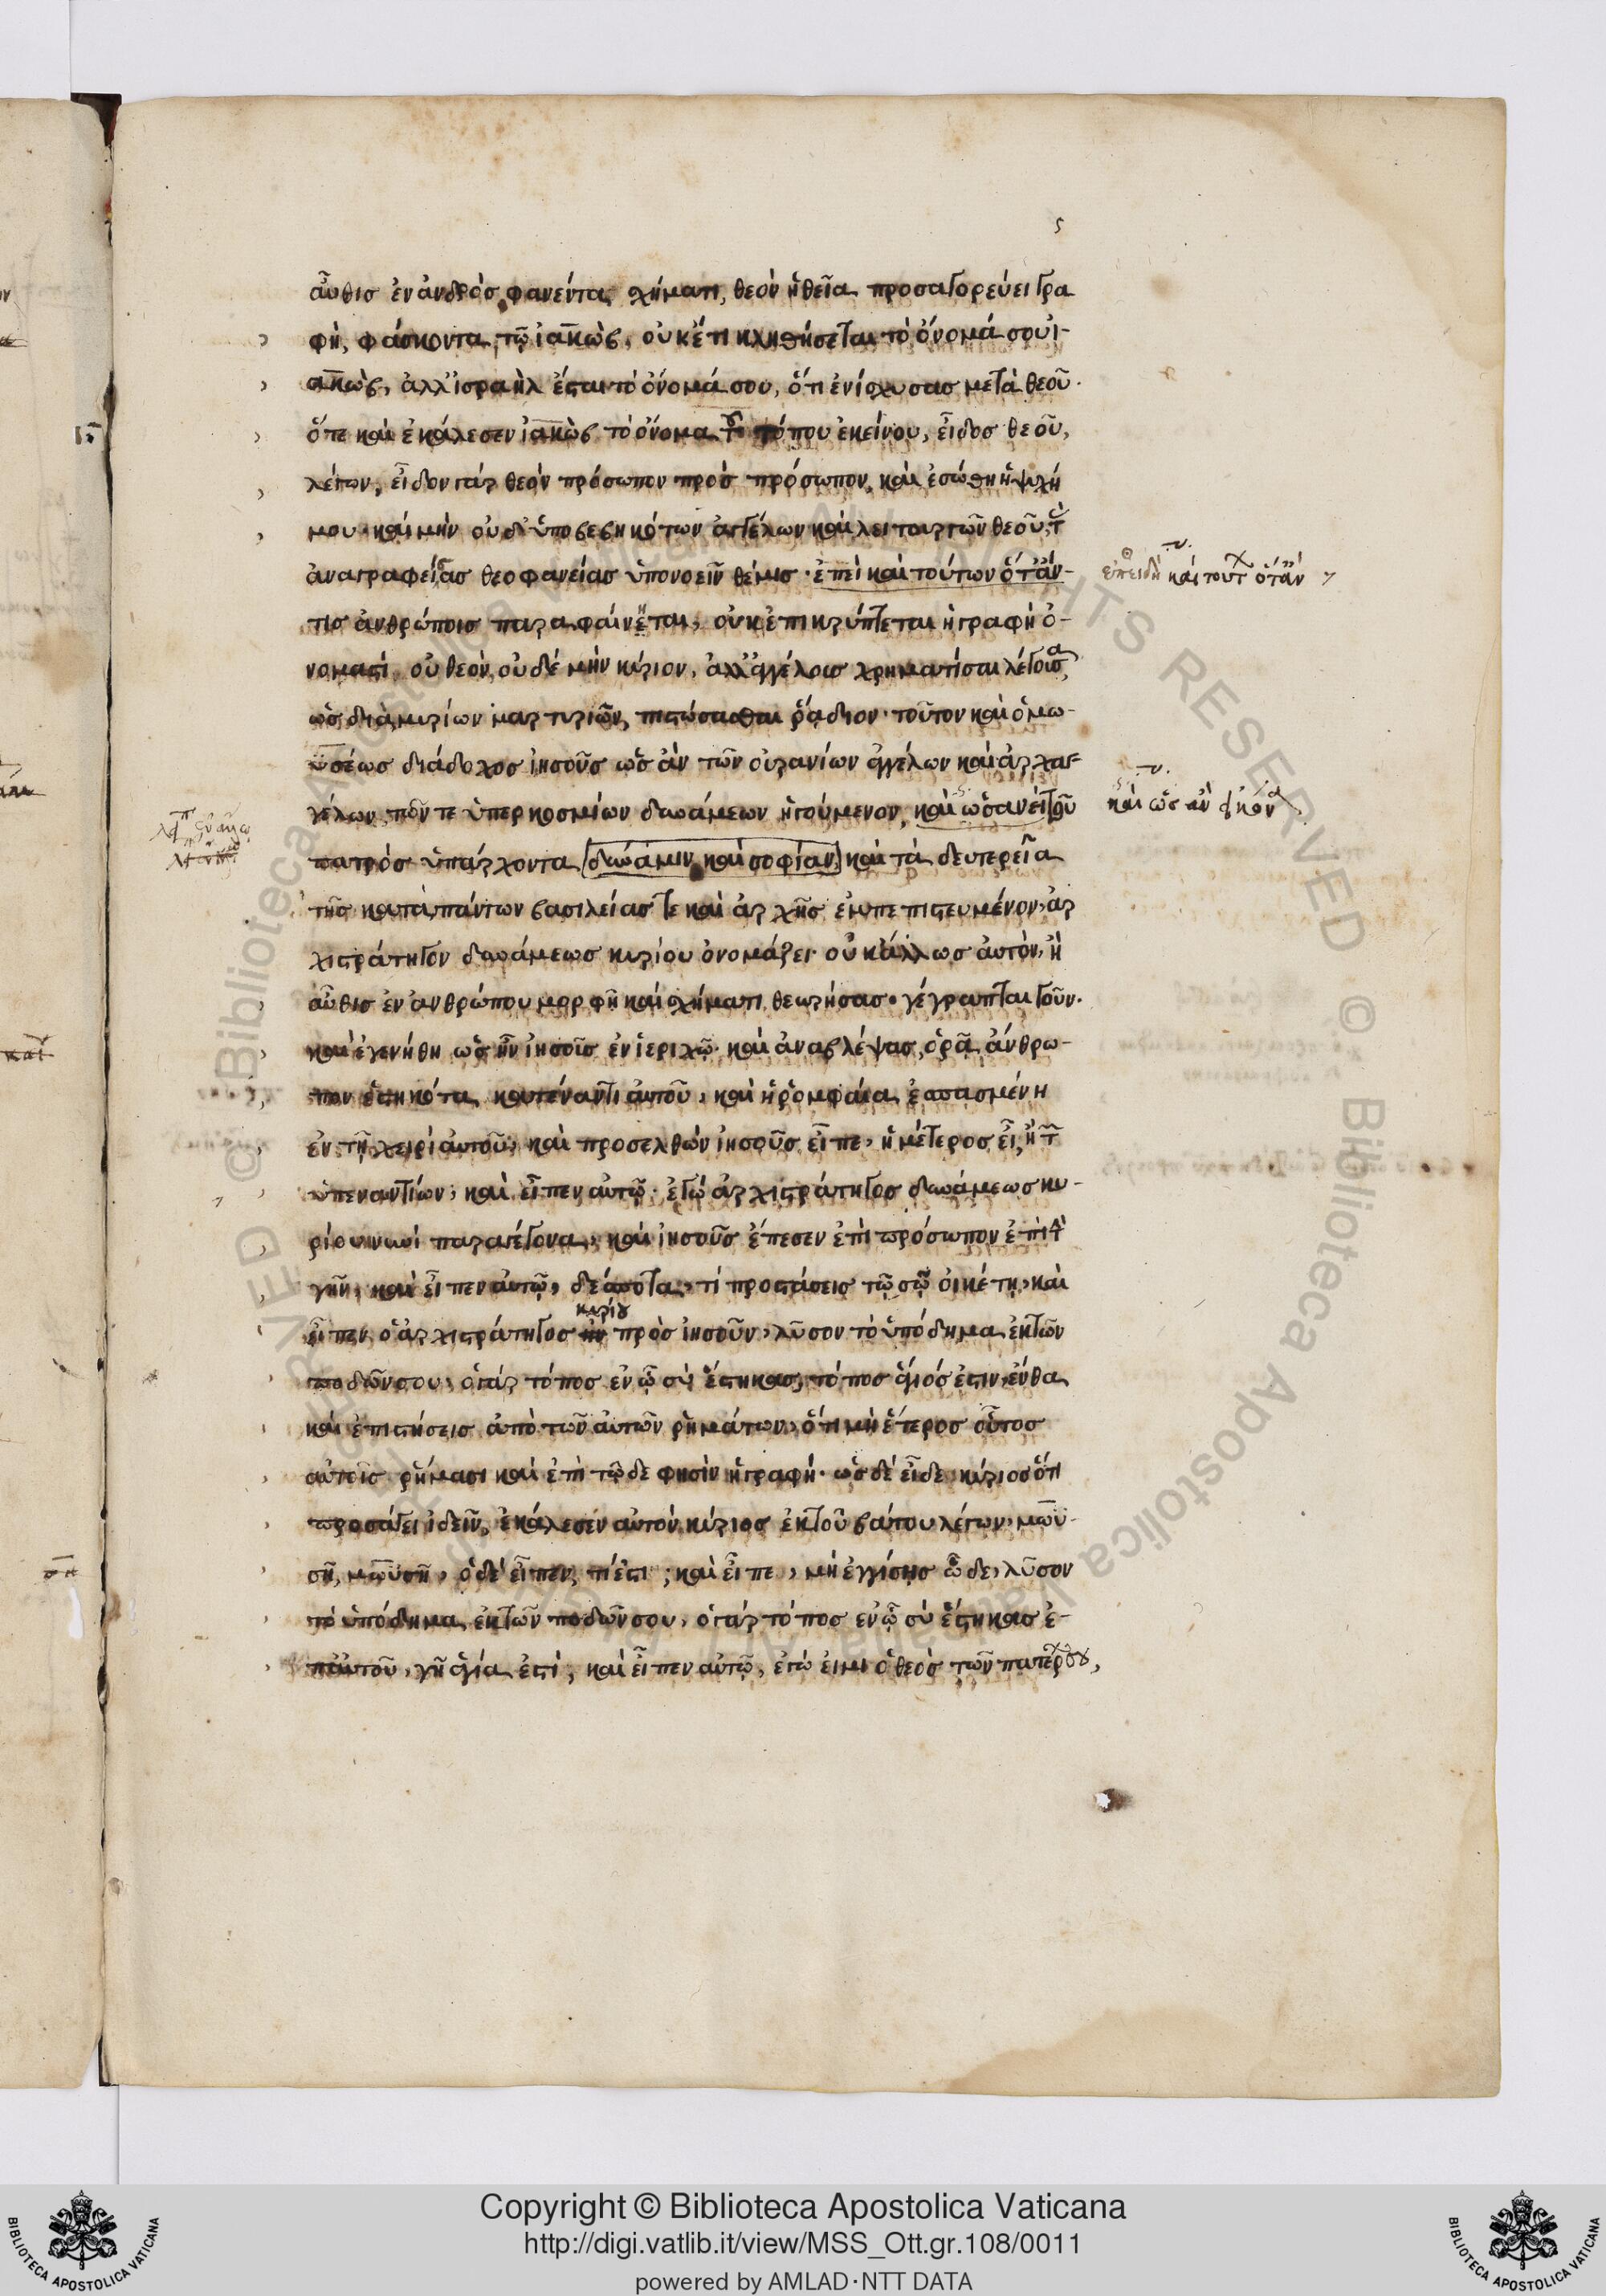 ς
αὖθισ ἐν ἀνδρὸσ φανέντα σχήματι, θεὸν ἡ θεῖα προσαγορεύει γρα
φὴ, φάσκοντα τῶ ἰακὼβ, οὐκέτι κληθήσεται τὸ ὄνομά σου ἰ-
ακὼβ, ἀλλ' ἰσραὴλ ἔσται τὸ ὄνομά σου, ὅτι ἐνίσχυσασ μετὰ θεοῦ.
ὅτε καὶ ἐκάλεσεν ἰακὼβ τὸ ὄνομα τοῦ τόπου ἐκείνου, εἶδοσ θεοῦ,
λέγων, εἶδον γὰρ θεὸν πρόσωπον πρὸσ πρόσωπον, καὶ ἐσώθη ἡ ψυχή
μου. καὶ μὴν οὐδ' ὑποβεβηκότων ἀγγέλων καὶ λειτουργῶν θεοῦ τὰσ
ἀναγραφείσασ θεοφανείασ ὑπονοεῖν θέμισ. ἐπεὶ καὶ τούτων ὅτ' ἄν-
τισ ἀνθρώποισ παραφαίνηται, οὐκ ἐπικρύπτεται ἡ γραφὴ ὀ-
νομαστὶ, οὐ θεὸν, οὐδὲ μὴν κύριον, ἀλλ' ἀγγέλουσ χρηματίσαι λέγουσα,
ὡσ διὰ μυρίων μαρτυριῶν πιστώσασθαι ῥάδιον. τοῦτον καὶ ὁ μω-
ϋσέωσ διάδοχοσ ἰησοῦσ ὡσ ἂν τῶν οὐρανίων ἀγγέλων καὶ ἀρχαγ-
γέλων, τῶν τε ὑπερκοσμίων δυνάμεων ἡγούμενον, καὶ ὡσανεὶ τοῦ
πατρὸσ ὑπάρχοντα δύναμιν καὶ σοφίαν καὶ τὰ δευτερεῖα
τῆσ κατὰ πάντων βασιλείασ τε καὶ ἀρχῆσ ἐμπεπιστευμένον, ἀρ
χιστράτηγον δυνάμεωσ κυρίου ὀνομάζει. οὐκ ἄλλωσ αὐτὸν, ἢ
αὖθισ ἐν ἀνθρώπου μορφῆ καὶ σχήματι θεωρήσασ. γέγραπται γοῦν.
καὶ ἐγενήθη ὡσ ἦν ἰησοῦσ ἐν ἱεριχῶ. καὶ ἀναβλέψασ, ὁρᾶ ἄνθρω-
πον ἑστηκότα κατέναντι αὐτοῦ, καὶ ἡ ῥομφαία ἐσπασμένη
ἐν τῆ χειρὶ αὐτοῦ, καὶ προσελθὼν ἰησοῦσ εἶπε, ἡμέτεροσ εἶ, ἢ τῶν
ὑπεναντίων, καὶ εἶπεν αὐτῶ. ἐγὼ ἀρχιστράτηγοσ δυνάμεωσ κυ-
ρίου νυνὶ παραγέγονα, καὶ ἰησοῦσ ἔπεσεν ἐπὶ πρόσωπον ἐπὶ τὴν
γῆν, καὶ εἶπεν αὐτῶ, δέσποτα, τί προστάσεισ τῶ σῶ οἰκέτη, καὶ
εἶπεν ὁ ἀρχιστράτηγοσ κυρίου πρὸσ ἰησοῦν, λῦσον τὸ ὑπόδημα ἐκ τῶν
ποδῶν σου, ὁ γὰρ τόποσ ἐν ὧ σὺ ἕστηκασ, τόποσ ἅγιόσ ἐστιν, ἔνθα
καὶ ἐπιστήσεισ ἀπὸ τῶν αὐτῶν ῥημάτων, ὅτι μὴ ἕτεροσ οὗτοσ
αὐτοῖσ ῥήμασι καὶ ἐπὶ τῶδε φησὶν ἡ γραφή. ὡσ δὲ εἶδε κύριοσ ὅτι
προσάγει ἰδεῖν, ἐκάλεσεν αὐτὸν κύριοσ ἐκ τοῦ βάτου λέγων, μωϋ-
σῆ, μωϋσῆ, ὁ δὲ εἶπεν, τί ἐστι; καὶ εἶπε, μὴ ἐγγίσησ ὧδε, λῦσον
τὸ ὑπόδημα ἐκ τῶν ποδῶν σου, ὁ γὰρ τόποσ ἐν ὧ σὺ ἕστηκασ ἐ-
π' αὐτοῦ, γῆ ἁγία ἐστὶ, καὶ εἶπεν αὐτῶ, ἐγώ εἰμι ὁ θεὸσ τῶν πατέρων σου,
ἐπειδὴ καὶ τούτων ὅτ' ἄν
© Biblioteca Apostolica Vaticana ALL RIGHTS RESERVED
Copyright © Biblioteca Apostolica Vaticana
http://digi.vatlib.it/view/MSS_Ott.gr.108/0011
powered by AMLAD·NTT DATA
BIBLIOTECA APOSTOLICA VATICANA
BIBLIOTECA APOSTOLICA VATICANA